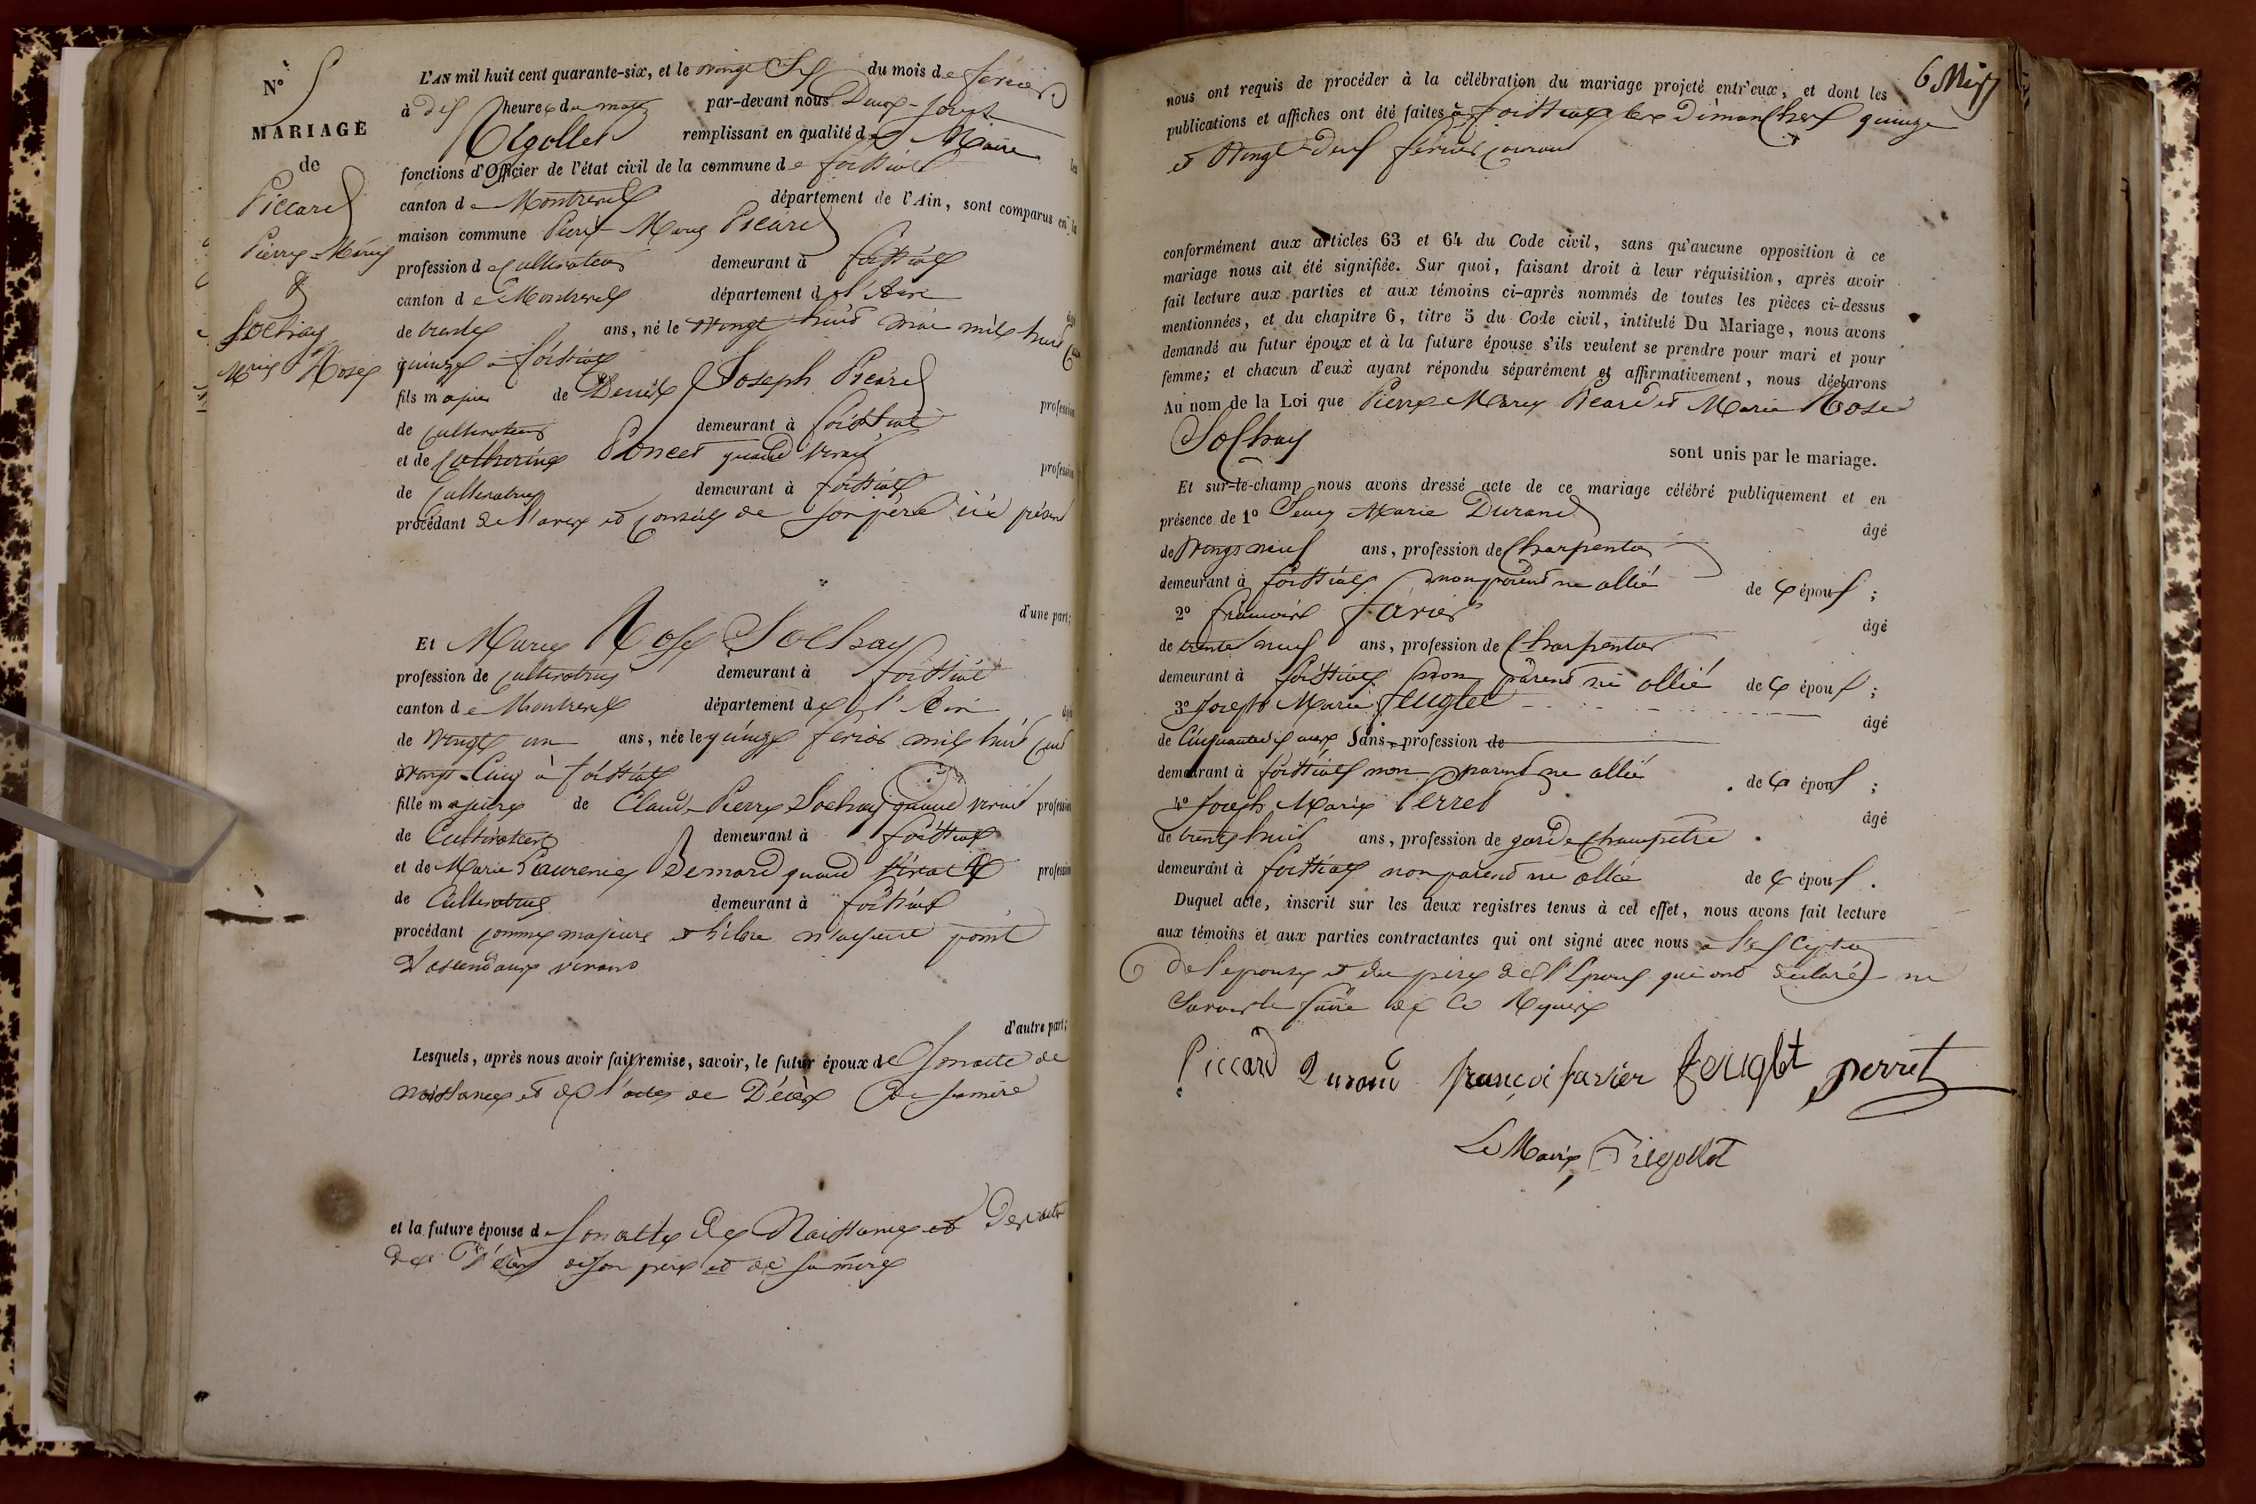 N° 5
MARIAGE
de
Piccard
Pierre-Marie
&
Sochay
Marie Rose
L'AN mil huit cent quarante-six, et le vingt Six du mois de février
à dix heures du matin par-devant nous Denis-Joseph
Rigollet remplissant en qualité de Maire les
fonctions d'Officier de l'état civil de la commune de foissiat
canton de Montrevel département de l'Ain, sont comparus en la
maison commune Pierre Marie Picard
profession de Cultivateur demeurant à foissiat
canton de Montrevel département de l'Ain
de trente ans, né le vingt huit mai mil huit cent
quinze à foissiat
fils majeur de Denis Joseph Picard profession
de Cultivateur demeurant à foissiat
et de Catherine Poncet quand vivait profession
de Cultivatrice demeurant à foissiat
procédant de l'avis et conseil de son père ici présent
d'une part;
Et Marie Rose Sochay
profession de cultivatrice demeurant à foissiat
canton de Montrevel département de l'Ain âgée
de vingt un ans, née le quinze fevrier mil huit cent
vingt-Cinq à foissiat
fille majeure de Claude-Pierre Sochay quand vivait profession
de Cultivateur demeurant à foissiat
et de Marie Laurence Bernard quand vivait profession
de Cultivatrice demeurant à foissiat
procédant comme majeure et libre n'ayant point
d'ascendants vivans
d'autre part;
Lesquels, après nous avoir fait remise, savoir, le futur époux de son acte de
naissance et de l'acte de Décès de sa mère
et la future épouse de son acte de Naissance et des actes
de Décès de son père et de sa mère
6 Mij
nous ont requis de procéder à la célébration du mariage projeté entr'eux, et dont les
publications et affiches ont été faites à foissiat les Dimanches quinze
et vingt-deux février courant
conformément aux articles 63 et 64 du Code civil, sans qu'aucune opposition à ce
mariage nous ait été signifiée. Sur quoi, faisant droit à leur réquisition, après avoir
fait lecture aux parties et aux témoins ci-après nommés de toutes les pièces ci-dessus
mentionnées, et du chapitre 6, titre 5 du Code civil, intitulé Du Mariage, nous avons
demandé au futur époux et à la future épouse s'ils veulent se prendre pour mari et pour
femme; et chacun d'eux ayant répondu séparément et affirmativement, nous déclarons
Au nom de la Loi que Pierre Marie Picard et Marie Rose
Sochay
sont unis par le mariage.
Et sur-le-champ nous avons dressé acte de ce mariage célébré publiquement et en
présence de 1° Marie Durand âgé
de vingt neuf ans, profession de Charpentier
demeurant à foissiat non parent ne allié de époux;
2° François farier âgé
de trente neuf ans, profession de Charpentier
demeurant à foissiat non parent ni allié de époux;
3° Joseph Marie feuglet âgé
de Cinquante ans, Sans profession de
demeurant à foissiat non parent ne allié de époux;
4° Joseph Marie Perret âgé
de trente huit ans, profession de garde Champêtre
demeurant à foissiat non parent ne allié de époux.
Duquel acte, inscrit sur les deux registres tenus à cet effet, nous avons fait lecture
aux témoins et aux parties contractantes qui ont signé avec nous à l'exception
de l'épouse et du père de l'Epoux qui ont déclaré ne
Savoir le faire de ce Requis
Piccard Durand françoi farier feuglet perret
Le Maire Rigollet